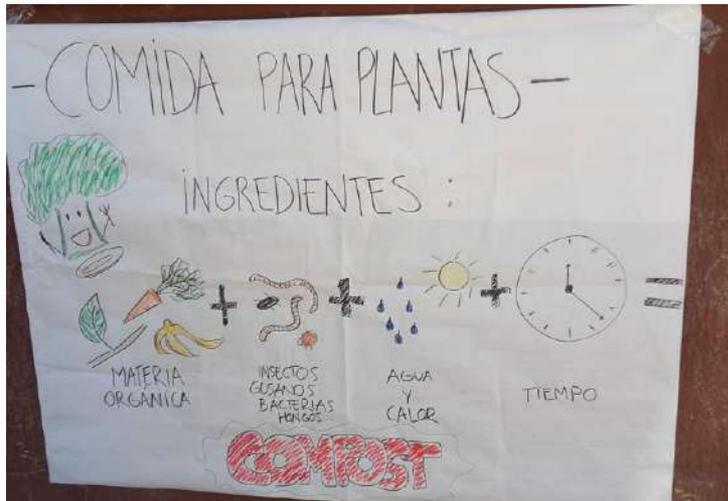 - COMIDA PARA PLANTAS -
INGREDIENTES :
+ + + =
MATERIA
ORGANICA
INSECTOS
GUSANOS
BACTERIAS
HONGOS
AGUA
Y
CALOR
TIEMPO
COMPOST